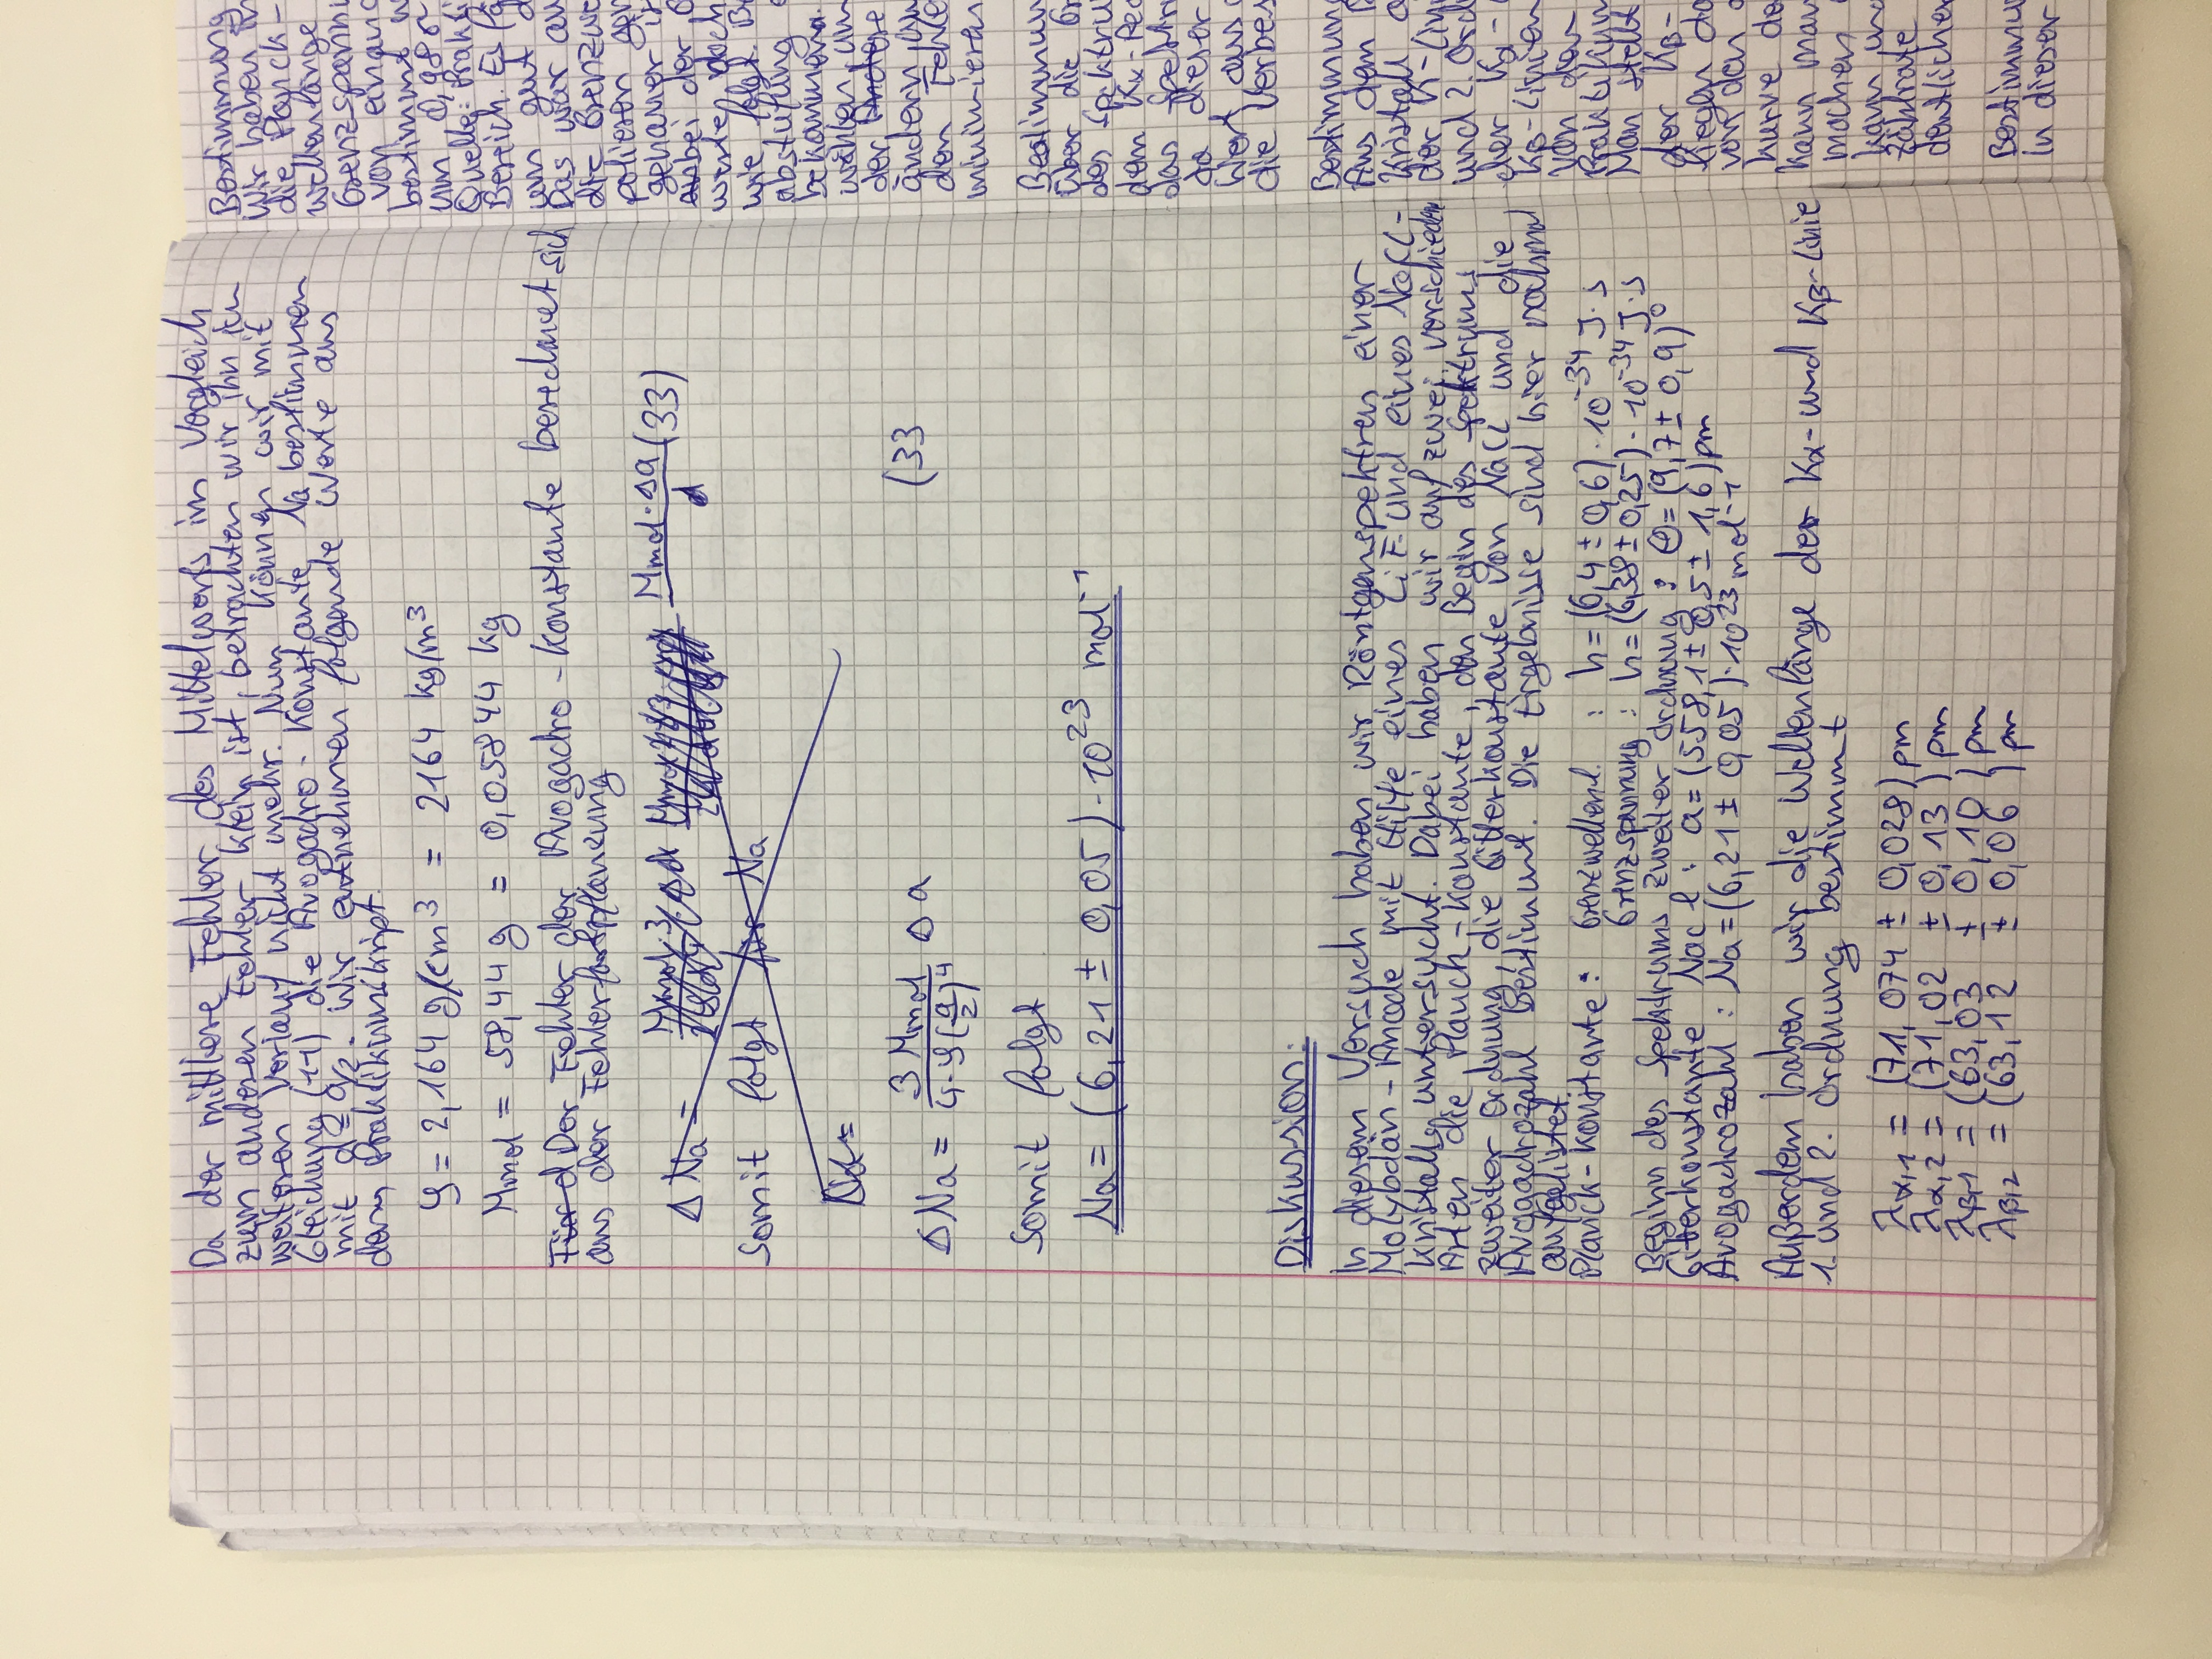 Da der mittlere Fehler des Mittelwerts im Vergleich
zum anderen Fehler klein ist, betrachten wir ihn im
weiteren Verlauf nicht mehr. Nun können wir mit
Gleichung (11) die Avogadro-Konstante Na bestimmen
mit d = a/2. Wir entnehmen folgende Werte aus
dem Praktikumskript.
ρ = 2,164 g/cm³ = 2164 kg/m³
Mmol = 58,44 g = 0,05844 kg
Für d Der Fehler der Avogadro-Konstante berechnet sich
aus der Fehlerfortpflanzung
Δ Na = Mmol · Δa / d (33)
Somit folgt für Na
Na =
Δ Na = 3 Mmol / 4·ρ(a/2)⁴ Δ a (33
Somit folgt
Na = (6,21 ± 0,05) · 10²³ mol⁻¹
Diskussion:
In diesem Versuch haben wir Röntgenspektren einer
Molybdän-Anode mit Hilfe eines LiF und eines NaCl-
Kristalls untersucht. Dabei haben wir auf zwei verschieden
Arten die Planck-Konstante, den Begin des Spektrums
zweiter Ordnung, die Gitterkonstante von NaCl und die
Avogadrozahl bestimmt. Die Ergebnisse sind hier nochmal
aufgelistet.
Planck-Konstante: Grenzwellenl. : h = (6,4 ± 0,6) · 10⁻³⁴ J·s
Grenzspannung : h = (6,38 ± 0,25) · 10⁻³⁴ J·s
Beginn des Spektrums zweiter Ordnung : Θ = (9,7 ± 0,9)°
Gitterkonstante NaCl : a = (558,1 ± 0,5 ± 1,6) pm
Avogadrozahl : Na = (6,21 ± 0,05) · 10²³ mol⁻¹
Außerdem haben wir die Wellenlänge der Kα- und Kβ-Linie
1. und 2. Ordnung bestimmt
λα,1 = (71,074 ± 0,028) pm
λα,2 = (71,02 ± 0,13) pm
λβ,1 = (63,03 ± 0,10) pm
λβ,2 = (63,12 ± 0,06) pm
Bestimmung
Wir haben in
die Planck-
wellenlänge
Grenzspannu
von einand
bestimmt w
um 0,98 σ
Quelle: Prakti
Bereich. Es
um gut d
Das war au
die Grenzwe
polieren gen
genauer is
bei der
werte, doch
wie folgt. B
abstufung
bekommen.
wählen, um
der Andere
ändern, um
den Fehle
minimieren
Bestimmun
über die Gr
des Spektru
dem Kα-Pea
das Spektr
da dieser
Wert aus
die Verbes
Bestimmung
Aus dem B
Kristall
der K-Lini
und 2. Ord
der Kα-
Kβ-Linien
von den
Praktikum
Man stellt
der Kβ-
liegen da
von den
kurve de
kann man
machen
kann und
Zählrate
deutlicher
Bestimmu
In dieser